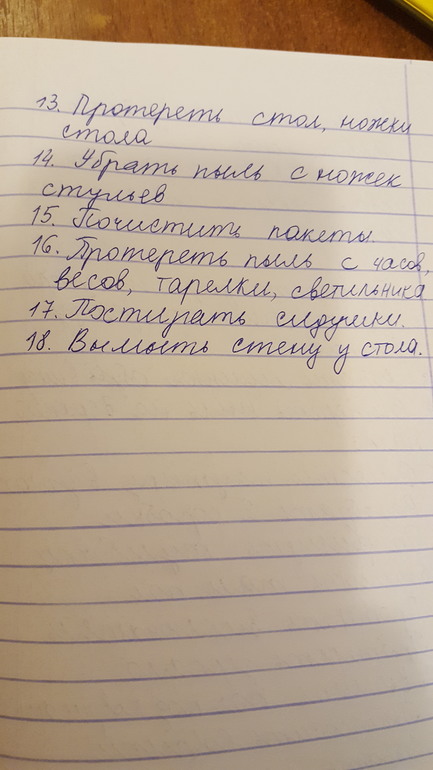 13. Протереть стол, ножки
стола
14. Убрать пыль с ножек
стульев
15. Почистить пакеты.
16. Протереть пыль с часов,
весов, тарелки, светильника
17. Постирать сидушки.
18. Вымыть стену у стола.